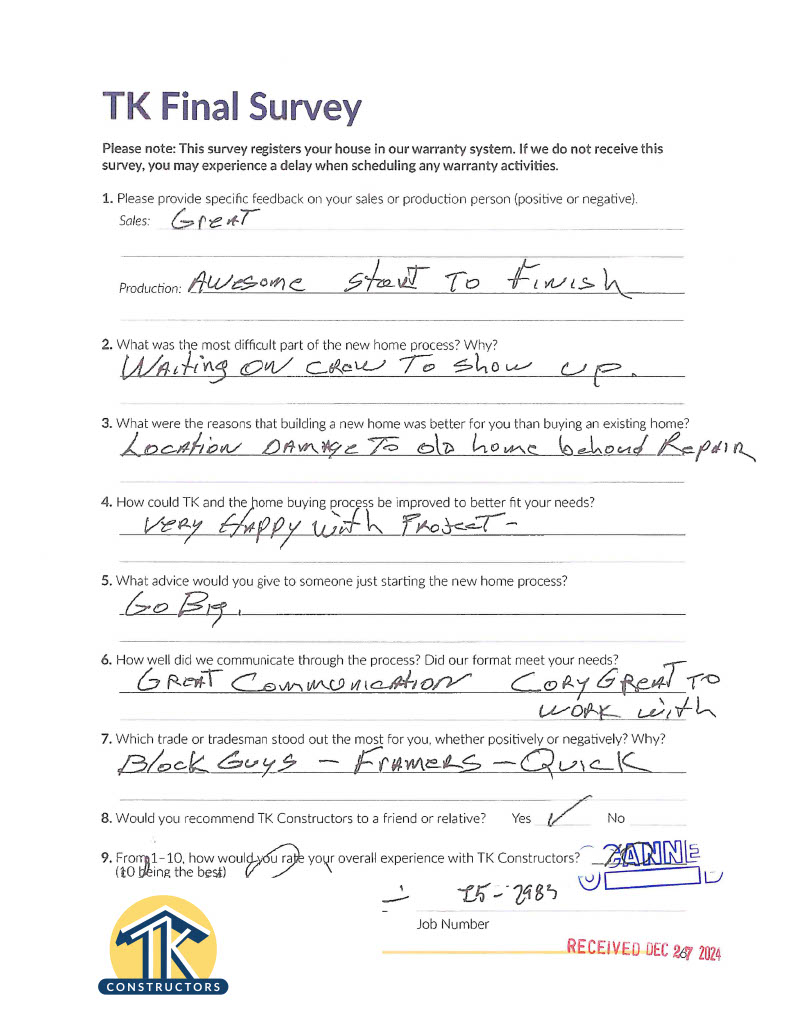 TK Final Survey
Please note: This survey registers your house in our warranty system. If we do not receive this
survey, you may experience a delay when scheduling any warranty activities.
1. Please provide specific feedback on your sales or production person (positive or negative).
Sales: Great
Production: Awesome Start To Finish
2. What was the most difficult part of the new home process? Why?
Waiting on crew To show up.
3. What were the reasons that building a new home was better for you than buying an existing home?
Location Damage To old home behond Repair
4. How could TK and the home buying process be improved to better fit your needs?
Very Happy with Project -
5. What advice would you give to someone just starting the new home process?
Go Big.
6. How well did we communicate through the process? Did our format meet your needs?
Great Communication Cory Great To
work with
7. Which trade or tradesman stood out the most for you, whether positively or negatively? Why?
Block Guys - Framers - Quick
8. Would you recommend TK Constructors to a friend or relative? Yes ✓ No
9. From 1-10, how would you rate your overall experience with TK Constructors?
(10 being the best)
Job Number
RECEIVED DEC 2024
TK
CONSTRUCTORS